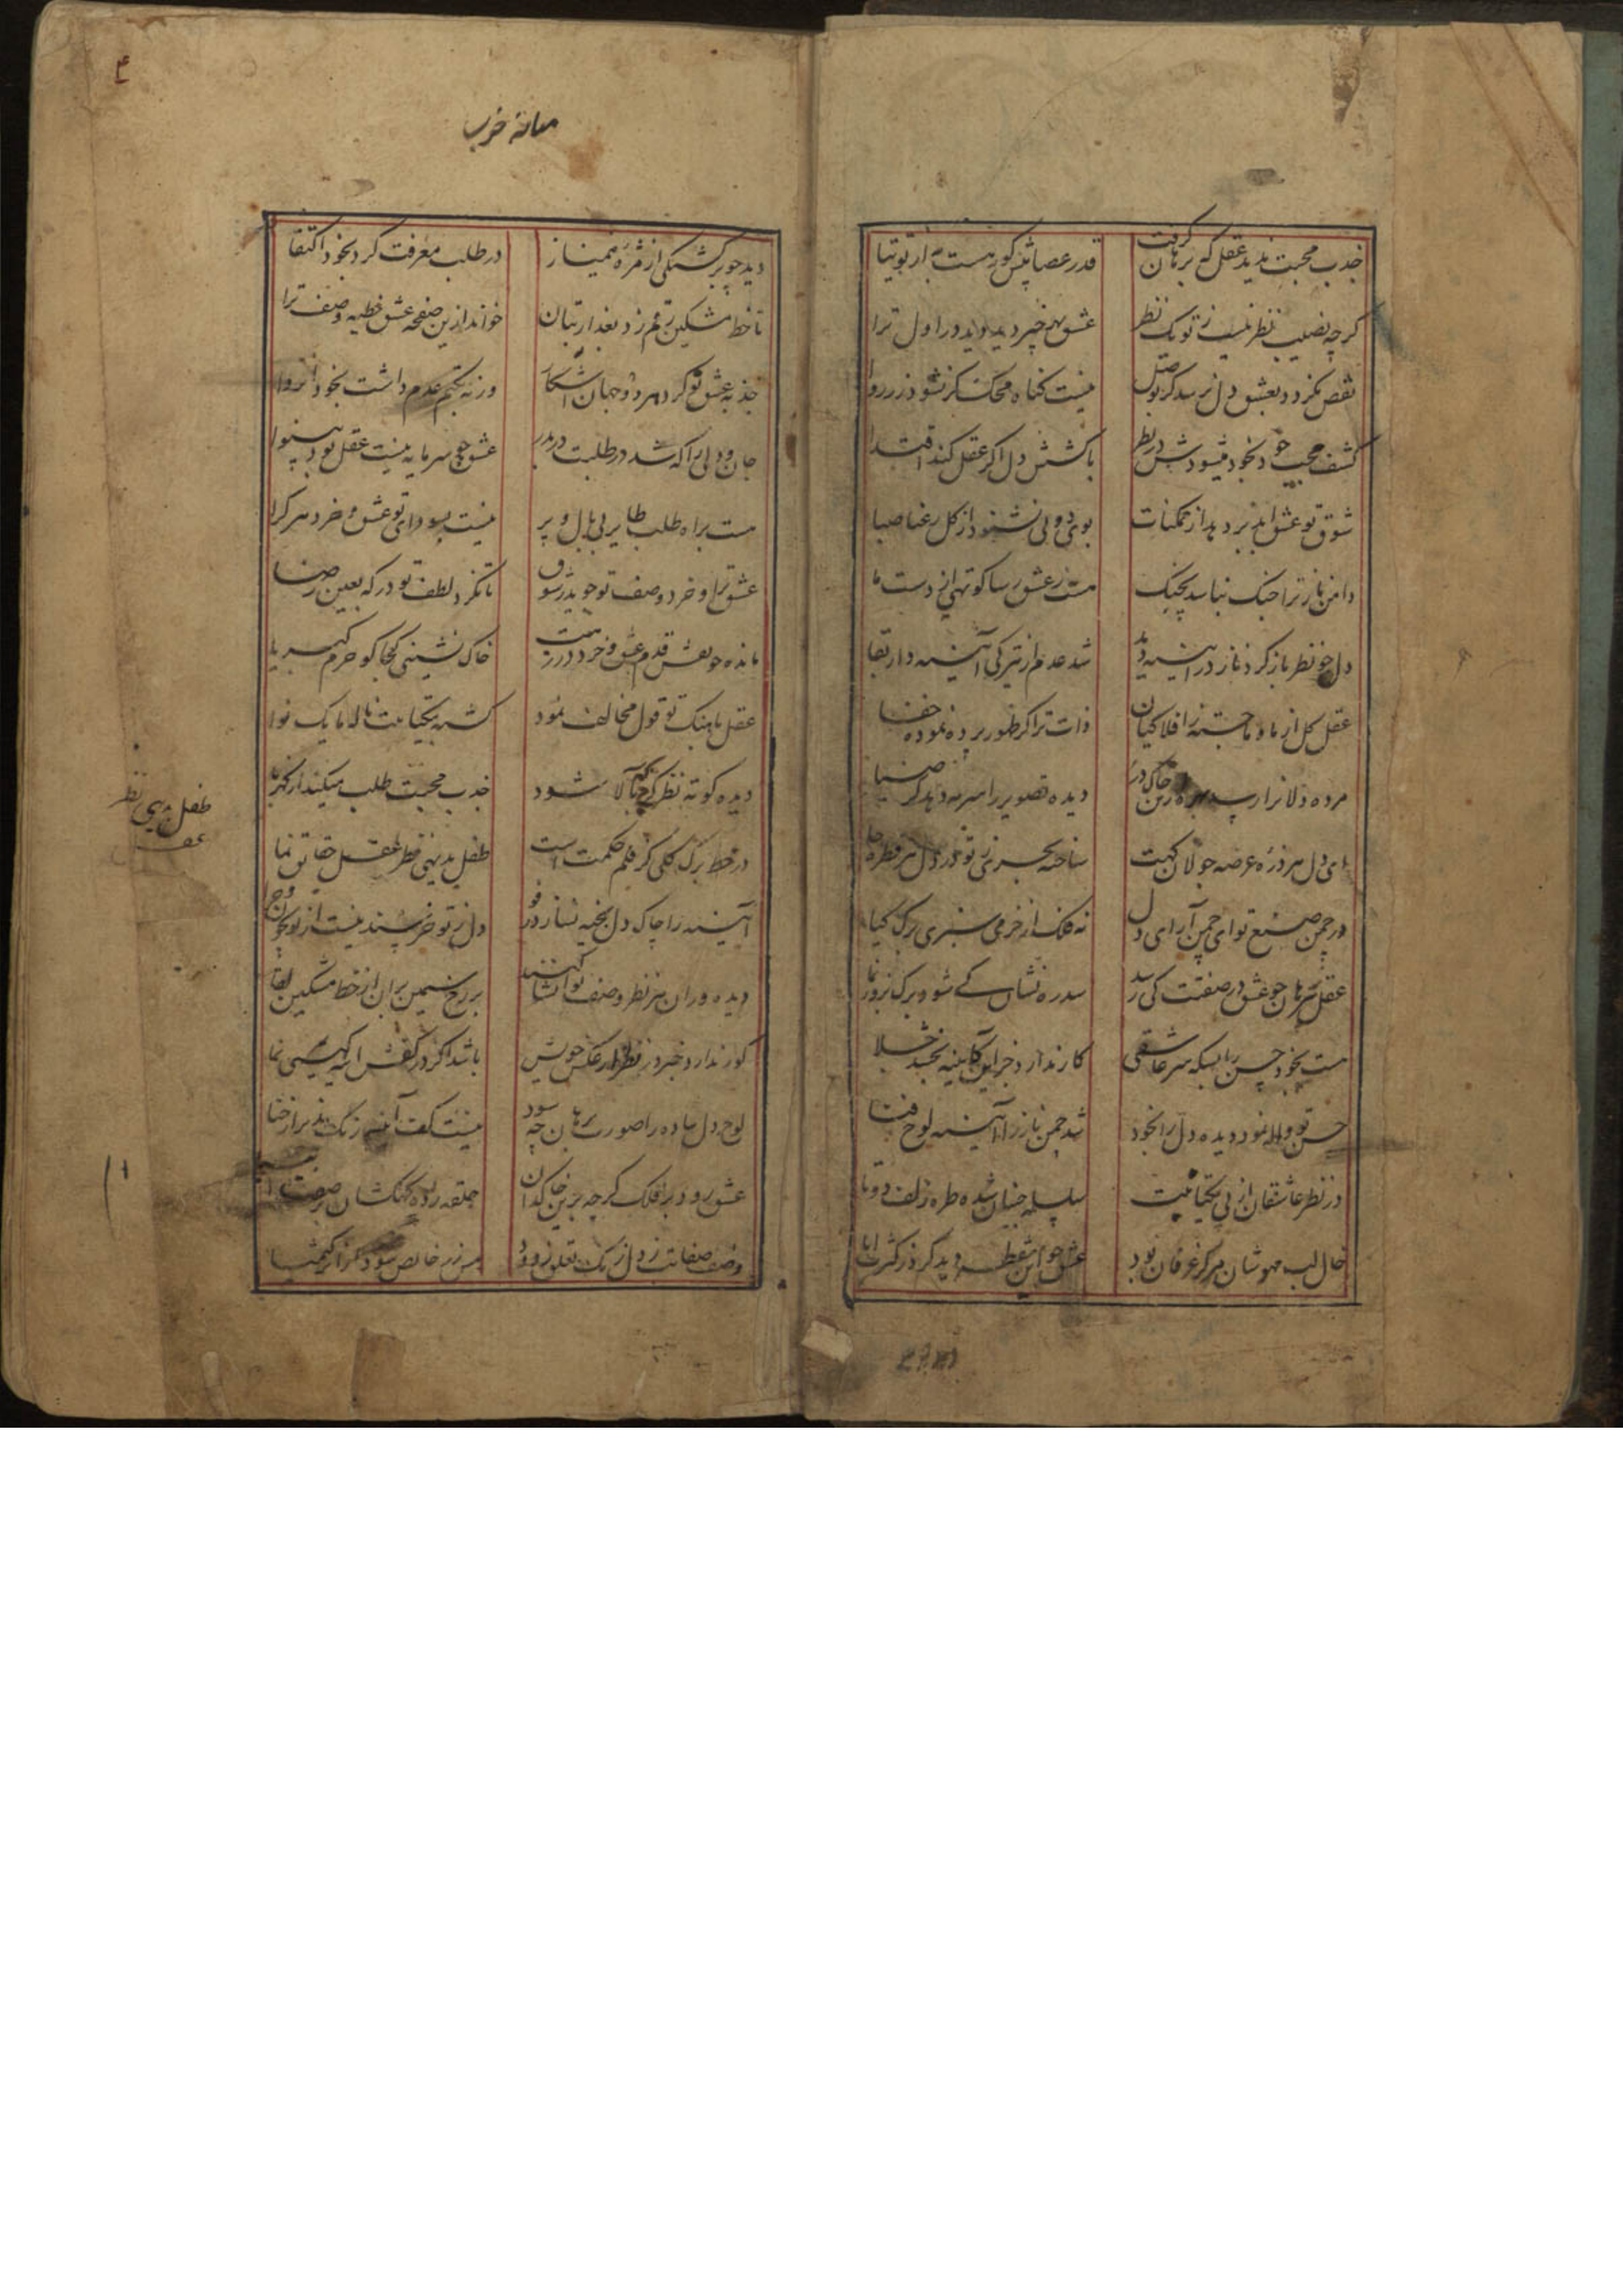 جذب محبت ندید عقل که برهان گرفت قدر عصا پیش کور هست به از توتیا
گرچه نصیب نظر نیست ز تو یک نظر عشق بهر چیز دید دید در اول ترا
نقص نگردد بعشق دل نرسد گر بوصل نیست گناه محک گر نشود زر روا
کشف حجب خود بخود میشودش در نظر با کشش دل اگر عقل کند اقتدا
شوق تو عشق ابد بر دهد از ممکنات بوی دوئی نشنود از گل رعنا صبا
دامن ناز ترا چنگ نیاید بچنگ هست ز عشق رسا کوتهی از دست ما
دل چو نظر باز کرد ناز در آیینه دید شد عدم از تیرگی آینه دار بقا
عقل کل از ما و ما جسته ز افلاکیان ذات ترا گر ظهور پرده نموده خفا
مرده دلانرا رسد بهره ز خاک درت دیده تصویر را سرمه دهد گر ضیا
ای دل هر ذره عرصه جولانگهت ساخته بحری ز تو در دل هر قطره جا
در چمن صنع تو ای چمن آرای دل نه فلک از خرمی سبزی برگ گیا
عقل برهان چو عشق در صفتت کی رسد سدره نشان کی شود برگ نرودنما
هست بخود حسن را بسکه سر عاشقی کار ندارد جز این کاینه بخشد جلا
حسن تو واله نمود دیده دل را بخود شد چمن ناز را آینه لوح فنا
در نظر عاشقان از پی یکتائیت سلسله جنبان شده طره زلف دوتا
خال لب مهوشان مرکز عرفان بود عشق چو این نقطه دید کرد ز کثرت ابا
۴
میانه خرب
دید چو برگشتگی از مژه همی ناز در طلب معرفت کرد بخود اکتفا
تا خط مشکین رقم زد بعذار بتان خواند ازین صفحه عشق خطبه وصف ترا
جذبه عشق تو کرد هر دو جهان آشکار ورنه بکتم عدم داشت بخود انزوا
جان و دلی را که شد در طلبت دربدر عشق چو سرمایه نیست عقل بود بینوا
هست براه طلب طایر بی بال و پر نیست بسودای تو عشق و خرد هر کرا
عشق ترا و خرد وصف تو جوید ز شوق تا نگرد لطف تو در که بعین رضا
مانده چو نقش قدم عشق و خرد در رهت خاک نشینی کجا کو حرم کبریا
عقل بآهنگ تو قول مخالف نمود گشته بیکتائیت ناله ما یک نوا
دیده کوته نظر گر همه آلا شود جذب محبت طلب میکند از کهربا
در خط برگ گلی گر قلم حکمت است طفل بدیهی نظر عقل حقایق نما
آینه را چاک دل بخیه نسازد رفو دل ز تو خرسند نیست از تو بخواهد
دیده وران هر نظر وصف تو انشا کنند بر رخ سیمین بران از خط مشکین لقا
کور ندارد خبر در نظر از عکس خویش باشد اگر در کفش آینه گیتی نما
لوح دل ساده را صورت برهان چه سود نیست کف آینه رنگ پذیر از حنا
عشق رود بر فلک گرچه برین خاکدان حلقه زده کهکشان
وصف صفات ز دل زنگ تعلق زدود مس زر خالص شود گر از کیمیا
طفل بدیهی نظر
عقل